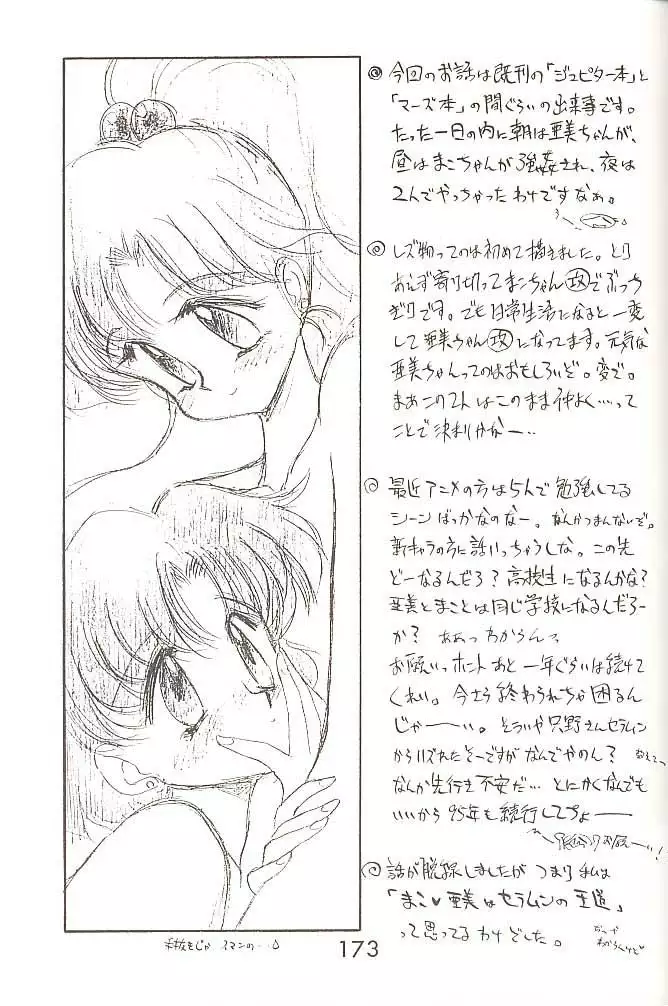 ◎今回のお話は既刊の「ジュピター本」と
「マーズ本」の間ぐらいの出来事です。
たった一日の内に朝は亜美ちゃんが、
昼はまこちゃんが強姦され、夜は
2人でやっちゃったわけですなぁ。
◎レズ物ってのは初めて描きました。とり
あえず寄り切ってまこちゃん攻でぶっち
ぎりです。でも日常生活になると一変
して亜美ちゃん攻になってます。元気な
亜美ちゃんってのはおもしろいぞ。変で。
まあこの2人はこのまま仲よく…って
ことで決まりかなー…
◎最近アニメの方は5人で勉強してる
シーンばっかなのなー。なんかつまんないぞ。
新キャラの方に話いっちゃうしな。この先
どーなるんだろ?高校生になるんかな?
亜美とまことは同じ学校になるんだろー
か?ああっわからんっ
お願いっホントあと一年ぐらいは続けて
くれい。今さら終わられちゃ困るん
じゃーーい。そういや只野さんセラムン
からハズれたそーですがなんでやのん?
なんか先行き不安だ…とにかくなんでも
いいから95年も続行してちょーー
◎話が脱線しましたがつまり私は
「まこ♥亜美はセラムンの王道」
って思ってるわけでした。
173